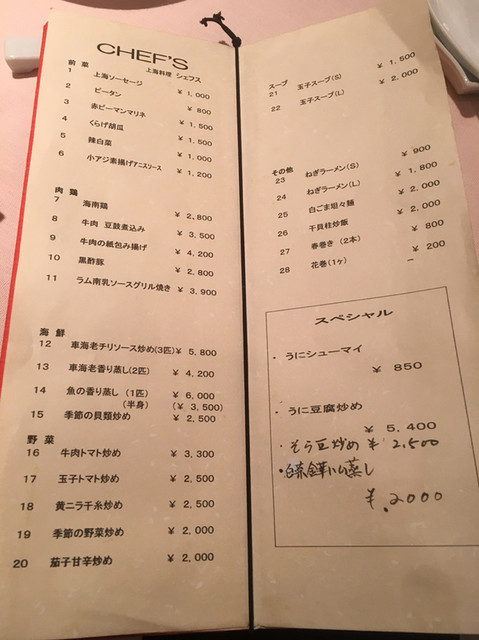 CHEF'S
上海料理 シェフス
前菜
1 上海ソーセージ ¥ 1,000
2 ピータン ¥ 800
3 赤ピーマンマリネ ¥ 1,500
4 くらげ胡瓜 ¥ 1,500
5 辣白菜 ¥ 1,000
6 小アジ素揚げアニスソース ¥ 1,200
肉 鶏
7 海南鶏 ¥ 2,800
8 牛肉 豆鼓煮込み ¥ 3,500
9 牛肉の紙包み揚げ ¥ 4,200
10 黒酢豚 ¥ 2,800
11 ラム南乳ソースグリル焼き ¥ 3,900
海鮮
12 車海老チリソース炒め(3匹) ¥ 5,800
13 車海老香り蒸し(2匹) ¥ 4,200
14 魚の香り蒸し (1匹) ¥ 6,000
(半身) (¥ 3,500)
15 季節の貝類炒め ¥ 2,500
野菜
16 牛肉トマト炒め ¥ 3,300
17 玉子トマト炒め ¥ 2,500
18 黄ニラ千糸炒め ¥ 2,500
19 季節の野菜炒め ¥ 2,000
20 茄子甘辛炒め ¥ 2,000
スープ
21 玉子スープ(S) ¥ 1,500
22 玉子スープ(L) ¥ 2,000
その他
23 ねぎラーメン(S) ¥ 900
24 ねぎラーメン(L) ¥ 1,800
25 白ごま坦々麺 ¥ 2,000
26 干貝柱炒飯 ¥ 2,000
27 春巻き (2本) ¥ 800
28 花巻(1ヶ) ¥ 200
スペシャル
・ うにシューマイ
¥ 850
・ うに豆腐炒め
¥ 5,400
・そら豆炒め ¥ 2,500
・白菜金華ハム蒸し
¥.2000